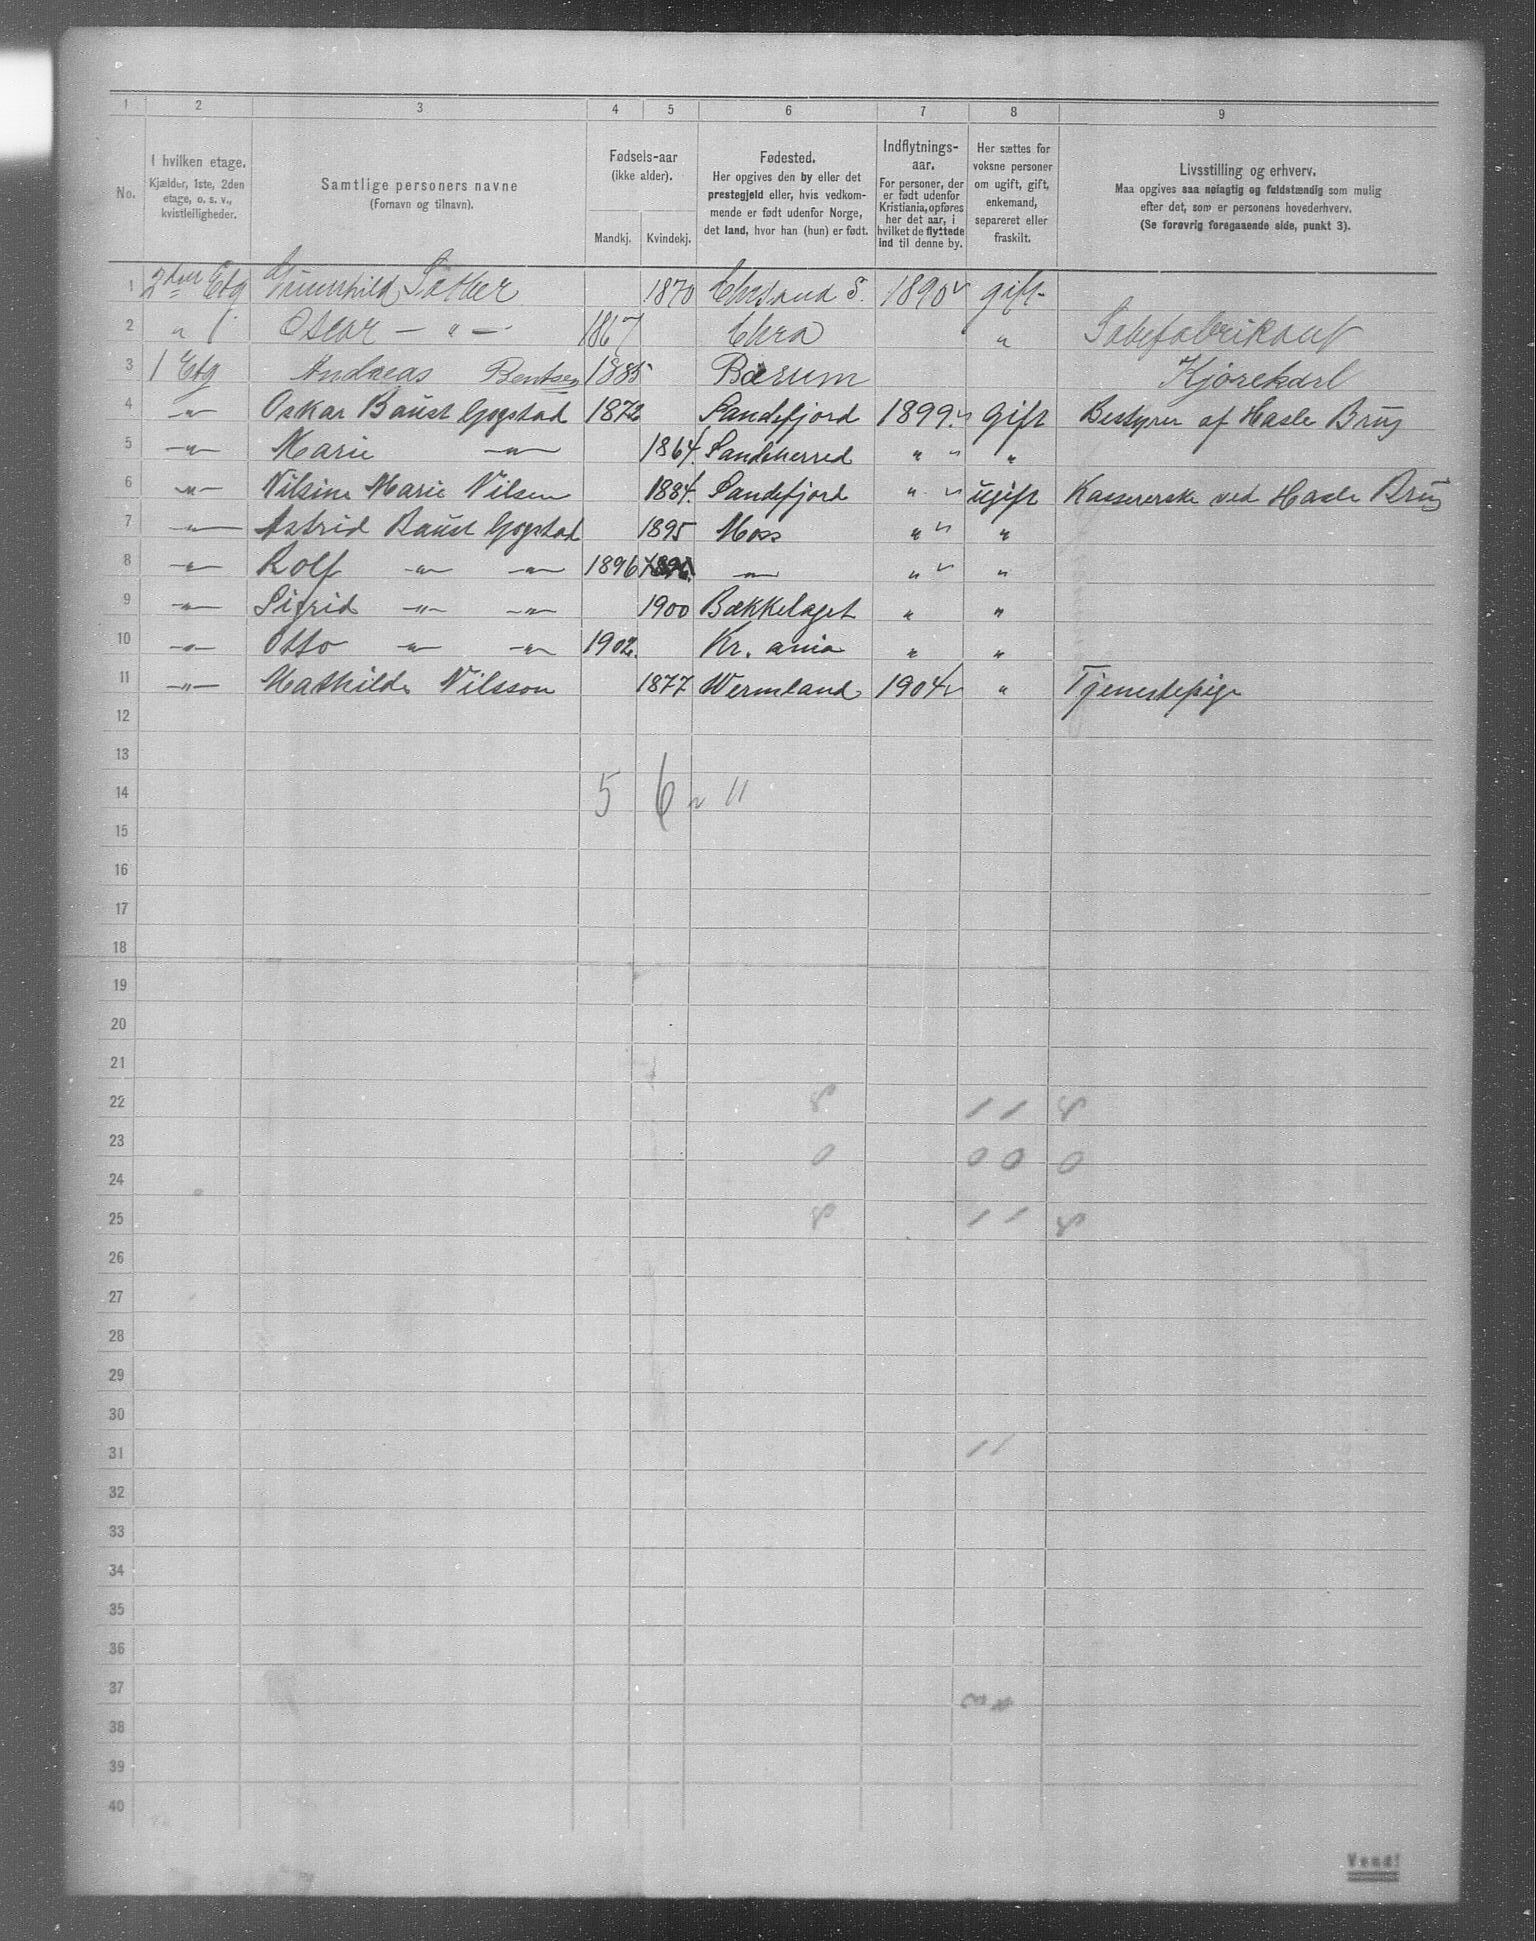 1 2 3 4 5 6 7 8 9
No.
I hvilken etage.
Kjælder, 1ste, 2den
etage, o. s. v.,
kvistleiligheder.
Samtlige personers navne
(Fornavn og tilnavn).
Fødsels-aar
(ikke alder).
Mandkj. Kvindekj.
Fødested.
Her opgives den by eller det
prestegjeld eller, hvis vedkom-
mende er født udenfor Norge,
det land, hvor han (hun) er født.
Indflytnings-
aar.
For personer, der
er født udenfor
Kristiania, opføres
her det aar, i
hvilket de flyttede
ind til denne by.
Her sættes for
voksne personer
om ugift, gift,
enkemand,
separeret eller
fraskilt.
Livsstilling og erhverv.
Maa opgives saa nøiagtig og fuldstændig som mulig
efter det, som er personens hovederhverv.
(Se forøvrig foregaaende side, punkt 3).
1 2den Etg Gunnhild Sæther 1870 Chrsand S. 1890 gift
2 " Oscar — " — 1867 Chra " Sæbefabrikant
3 1 Etg Andreas Bentsen 1885 Bærum Kjørekarl
4 —"— Oskar Baust Gogstad 1872 Sandefjord 1899 Gift Bestyrer af Hasle Brug
5 —"— Marie —"— 1864. Sandeherred " "
6 —"— Nilsine Marie Nilsen 1884. Sandefjord " ugift Kassererske ved Hasle Brug
7 —"— Astrid Baust Gogstad 1895 Moss " "
8 —"— Rolf —"— —"— 1896 —"— " "
9 —"— Sigrid —"— —"— 1900 Bækkelaget " "
10 —"— Otto —"— —"— 1902. Kr. ania " "
11 —"— Mathilde Nilsson 1877 Wermland 1904 " Tjenestepige
12
13
14 5 6 11
15
16
17
18
19
20
21
22
23
24
25
26
27
28
29
30
31
32
33
34
35
36
37
38
39
40
Vend!